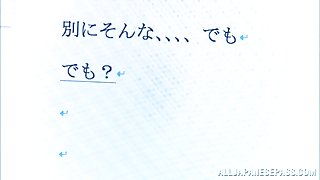 別にそんな、、、、でも
でも？
ALLJAPANESEPASS.COM